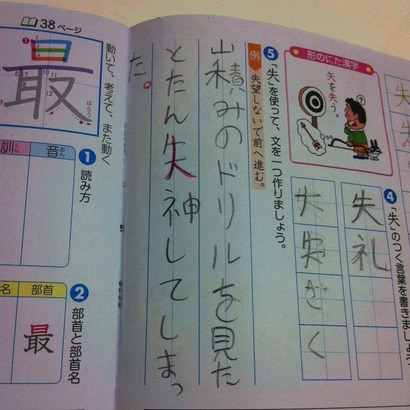 ④「失」のつく言葉を書きましょう。
失礼
失敗
形のにた漢字
矢を失う。
⑤「失」を使って、文を一つ作りましょう。
例 失望しないで前へ進む。
山積みのドリルを見た
とたん失神してしまっ
た。
38ページ
最
はらう
動いて、考えて、また動く
①読み方
音
おん
訓
くん
②部首と部首名
部首
名
最